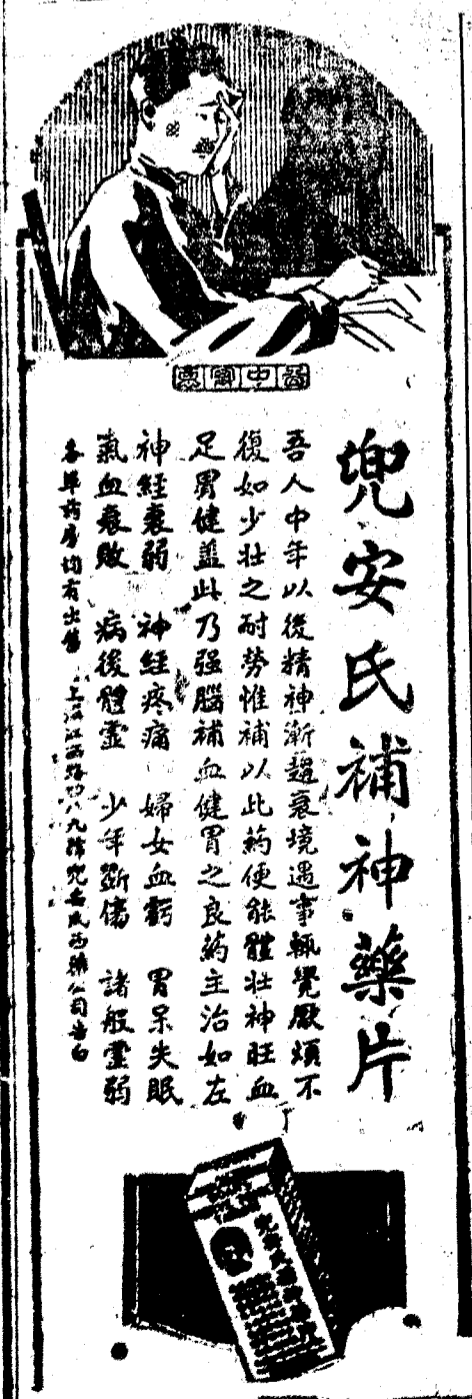 兜安氏補神藥片
吾人中年以後精神漸趨衰境遇事輒覺厭煩不
復如少壯之耐勞惟補以此藥便能體壯神旺血
足胃健蓋此乃强腦補血健胃之良藥主治如左
神經衰弱　神經疼痛　婦女血虧　胃呆失眠
氣血衰敗　病後體虛　少年斲傷　諸般虛弱
各埠藥房均有出售　上海江西路　八九號兜安氏西藥公司告白
兜安氏補神藥片